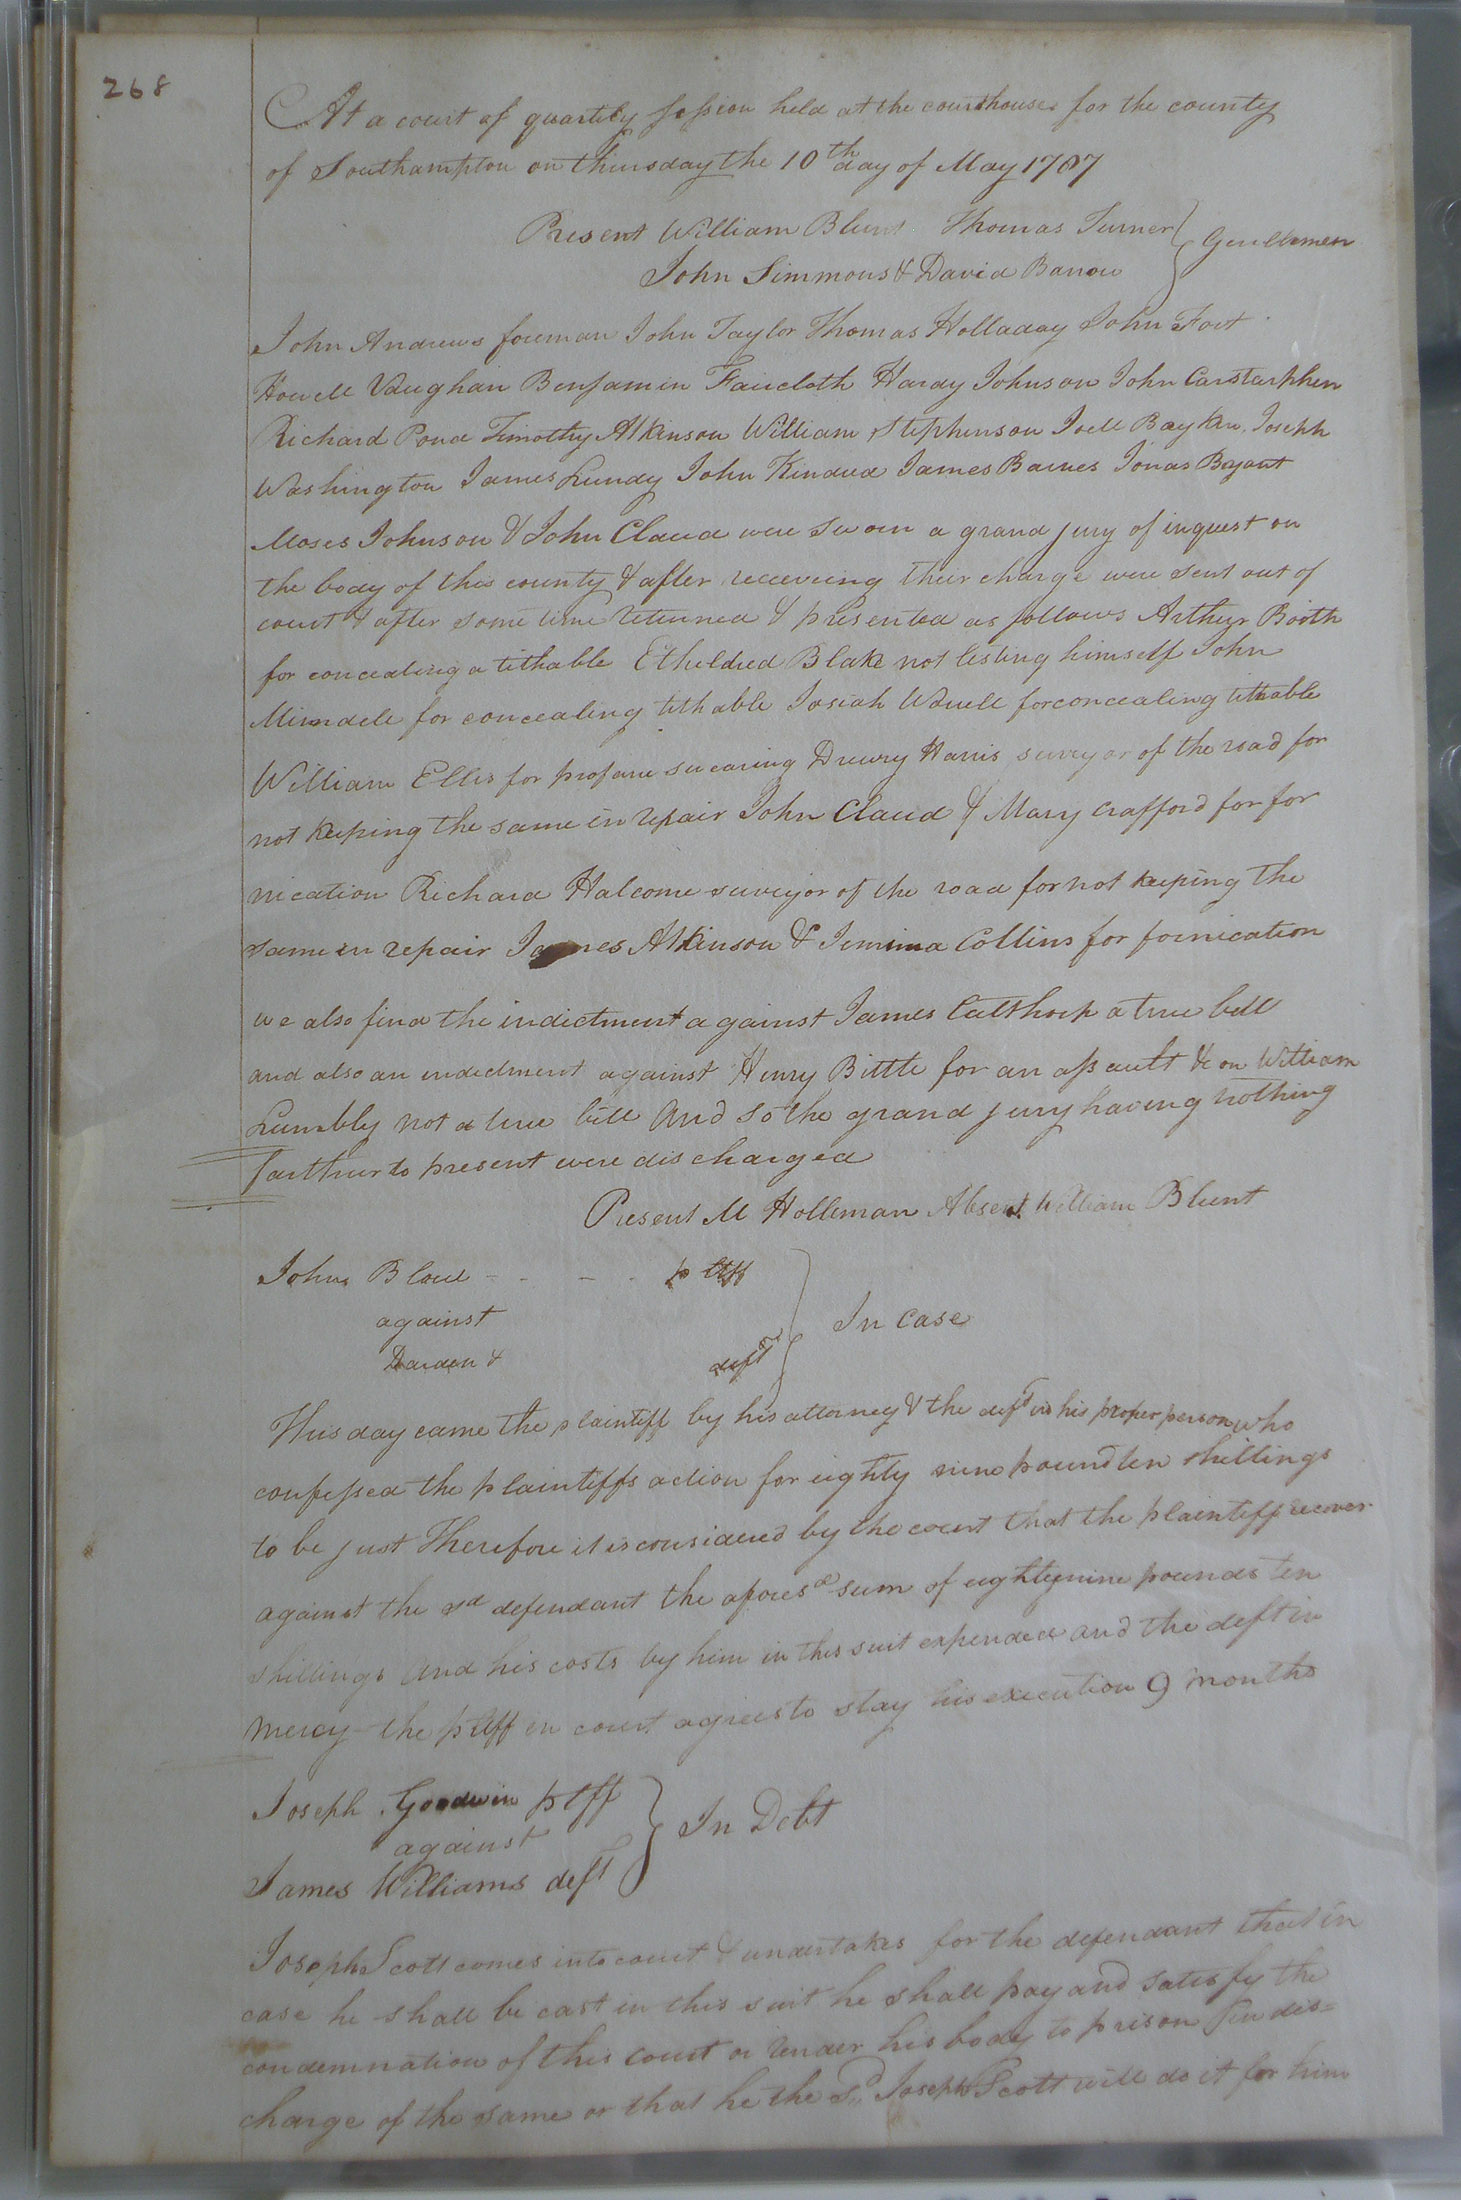 268
At a court of quarterly session held at the courthouse for the county
of Southampton on thursday the 10th day of May 1787
Present William Blunt Thomas Turner } Gentlemen
John Simmons & David Barrow
John Andrews foreman John Taylor Thomas Holladay John Fort
Howell Vaughan Benjamin Faircloth Hardy Johnson John Carstarphen
Richard Pond Timothy Atkinson William Stephenson Joell Baykin Joseph
Washington James Lundy John Kindred James Barnes Jonas Bryant
Moses Johnson & John Claud were sworn a grand jury of inquest on
the body of this county & after receiveing their charge were sent out of
court & after some time returned & presented as follows Arthur Booth
for concealing a tithable Etheldred Blake not listing himself John
for concealing tithable Josiah forconcealing tithable
William Ellis for profane swearing Drewry Harris surveyor of the road for
not keeping the same in repair John Claud & Mary Crafford for for
nication Richard Halcome surveyor of the road for not keeping the
same in repair James Atkinson & Jemima Collins for fornication
we also find the indictment against James Calthorp a true bill
and also an indictment against Henry Bittle for an assault &c on William
Lumbly not a true bill And so the grand jury having nothing
farther to present were discharged
Present M Holleman Absent William Blunt
John Blow - - - - pltff } In Case
against
Darden & deft
This day came the plaintiff by his attorney & the deft in his proper person who
confessed the plaintiffs action for eighty nine pound ten shillings
to be just Therefore it is considered by the court that the plaintiff recover
against the sd defendant the aforesd sum of eightynine pounds ten
shillings and his costs by him in this suit expended and the deft in
mercy the pltff in court agrees to stay his execution 9 months
Joseph Goodwin pltff } In Debt
against
James Williams deft
Joseph Scott comes into court & undertakes for the defendant that in
case he shall be cast in this suit he shall pay and satisfy the
condemnation of this court or render his body to prison in dis=
charge of the same or that he the sd Joseph Scott will do it for him